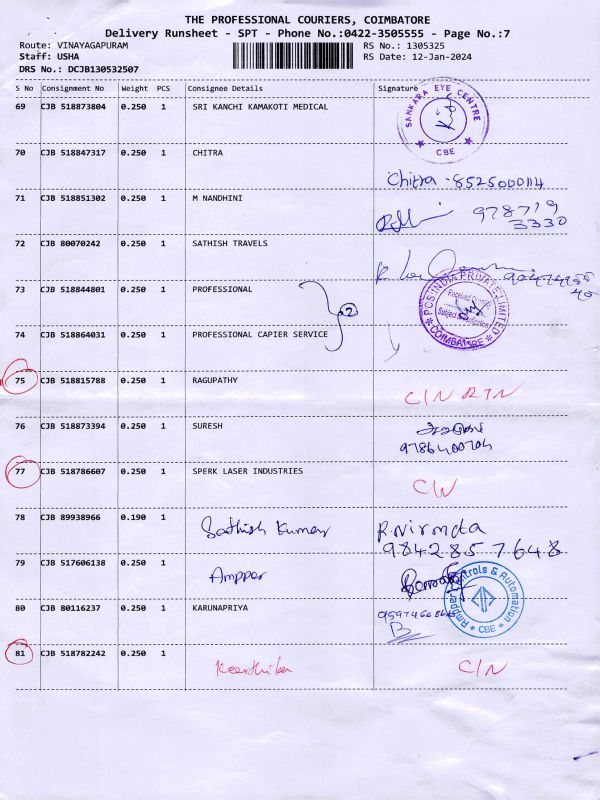 THE PROFESSIONAL COURIERS, COIMBATORE
Delivery Runsheet - SPT - Phone No.:0422-3505555 - Page No.:7
Route: VINAYAGAPURAM RS No.: 1305325
Staff: USHA RS Date: 12-Jan-2024
DRS No.: DCJB130532507
S No Consignment No Weight PCS Consignee Details Signature
69 CJB 518873804 0.250 1 SRI KANCHI KAMAKOTI MEDICAL
SANKARA EYE CENTRE
CBE
70 CJB 518847317 0.250 1 CHITRA
Chitra - 8525000114
71 CJB 518851302 0.250 1 M NANDHINI
978719
3330
72 CJB 80070242 0.250 1 SATHISH TRAVELS
73 CJB 518844801 0.250 1 PROFESSIONAL
2
PCS INDIA PRIVATE LIMITED
COIMBATORE
74 CJB 518864031 0.250 1 PROFESSIONAL CAPIER SERVICE
75 CJB 518815788 0.250 1 RAGUPATHY C/N RTN
76 CJB 518873394 0.250 1 SURESH
9786400704
77 CJB 518786607 0.250 1 SPERK LASER INDUSTRIES
78 CJB 89938966 0.190 1 Sathish Kumar R. Nirmala
9842857648
79 CJB 517606138 1 Amppar
Amppar Controls & Automation
CBE
80 CJB 80116237 0.250 1 KARUNAPRIYA
81 CJB 518782242 0.250 1 Keerthika C/N